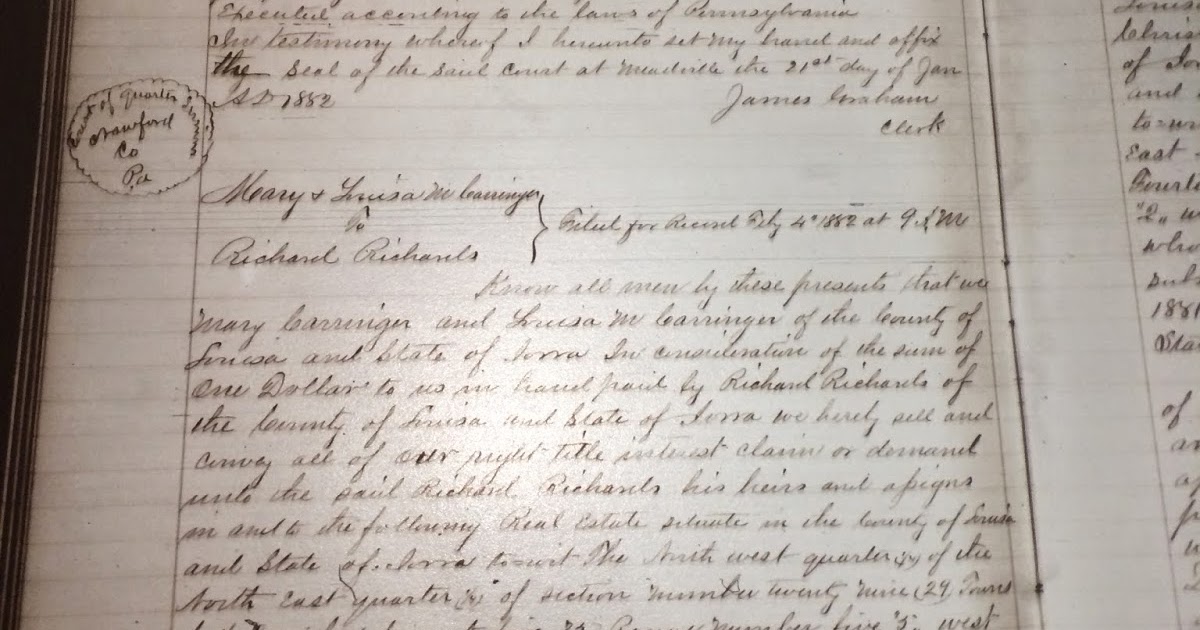 Executed according to the laws of Pennsylvania
In testimony whereof I hereunto set my hand and affix
the Seal of the said Court at Meadville the 21st day of Jan
AD 1882
James Graham
Clerk
Court of Quarter Sessions
Crawford
Co
Pa
Mary & Louisa M Carringer
To
Richard Richards
Filed for Record Feby 4" 1882 at 9 AM
Know all men by these presents that we
Mary Carringer and Louisa M Carringer of the County of
Louisa and State of Iowa In consideration of the sum of
One Dollar to us in hand paid by Richard Richards of
the County of Louisa and State of Iowa we hereby sell and
convey all of our right title interest claim or demand
unto the said Richard Richards his heirs and assigns
in and to the following Real Estate situate in the County of Louisa
and State of Iowa to-wit The North west quarter (¼) of the
North East quarter (¼) of section number twenty nine (29) Town
Range number five "5" west
Louisa
Chris
of Io
and
to-wi
East
Fourt
"2" w
who
sub
1881
Sta
of
an